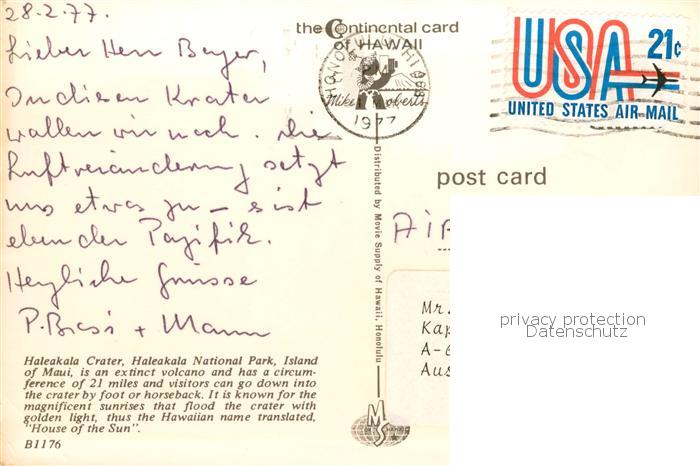 28.2.77.
Lieber Herr Bayer,
In diesen Krater
wollen wir noch. Die
Luftveränderung setzt
uns etwas zu – s'ist
eben der Pazifik.
Herzliche Grüsse
P. + Mann
Haleakala Crater, Haleakala National Park, Island
of Maui, is an extinct volcano and has a circum-
ference of 21 miles and visitors can go down into
the crater by foot or horseback. It is known for the
magnificent sunrises that flood the crater with
golden light, thus the Hawaiian name translated,
"House of the Sun".
B1176
the Continental card
of HAWAII
Mike Roberts
1977
USA 21c
UNITED STATES AIR MAIL
post card
Distributed by Movie Supply of Hawaii, Honolulu
AIR
Mr.
Kap
A-6
Aus
MS
privacy protection
Datenschutz